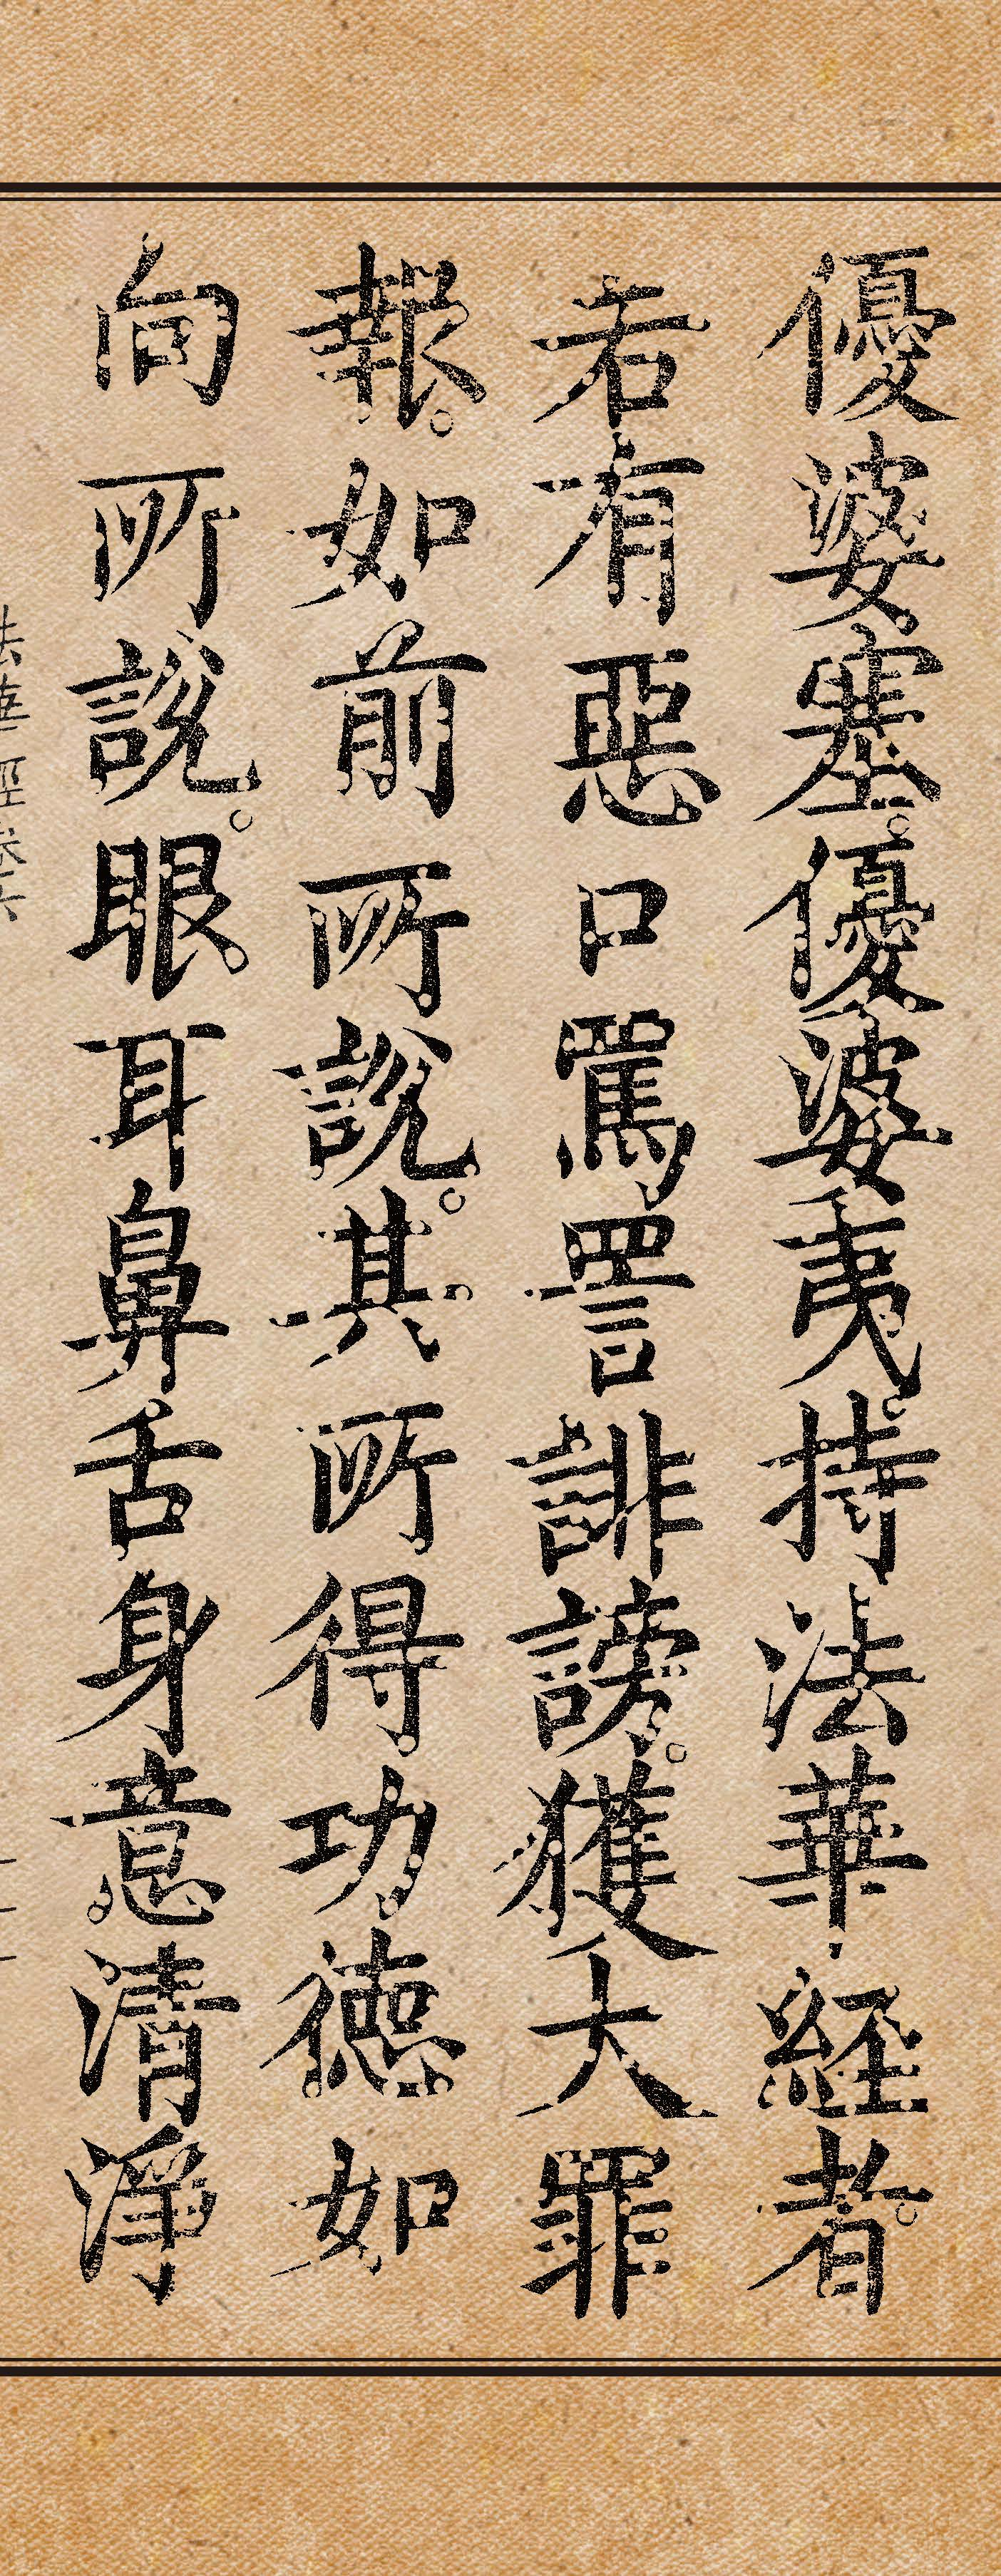 優婆塞。優婆夷。持法華経者。
若有惡口罵詈誹謗。獲大罪
報。如前所說。其所得功德如
向所說。眼耳鼻舌身意清淨
法華經卷六